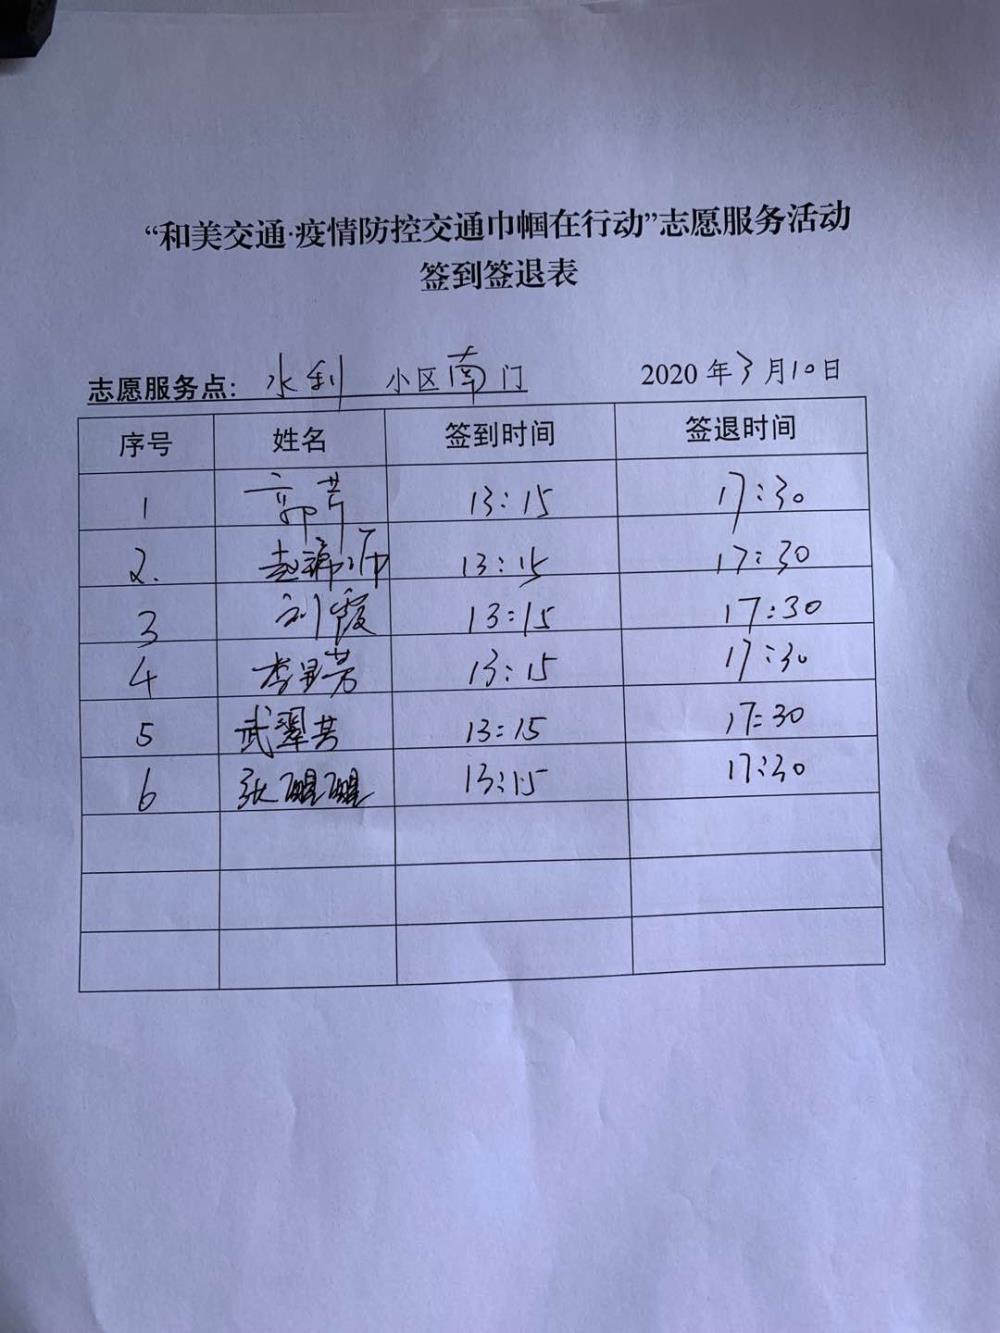 “和美交通·疫情防控交通巾帼在行动”志愿服务活动
签到签退表
志愿服务点: 水利 小区南门 2020年3月10日
序号 姓名 签到时间 签退时间
1 郭芳 13:15 17:30
2. 赵 13:15 17:30
3 刘霞 13:15 17:30
4 李芳 13:15 17:30
5 武翠芳 13:15 17:30
6 张醒醒 13:15 17:30